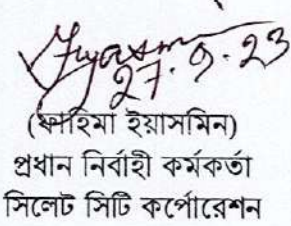 Fyasmin
27.9.23
(ফাহিমা ইয়াসমিন)
প্রধান নির্বাহী কর্মকর্তা
সিলেট সিটি কর্পোরেশন